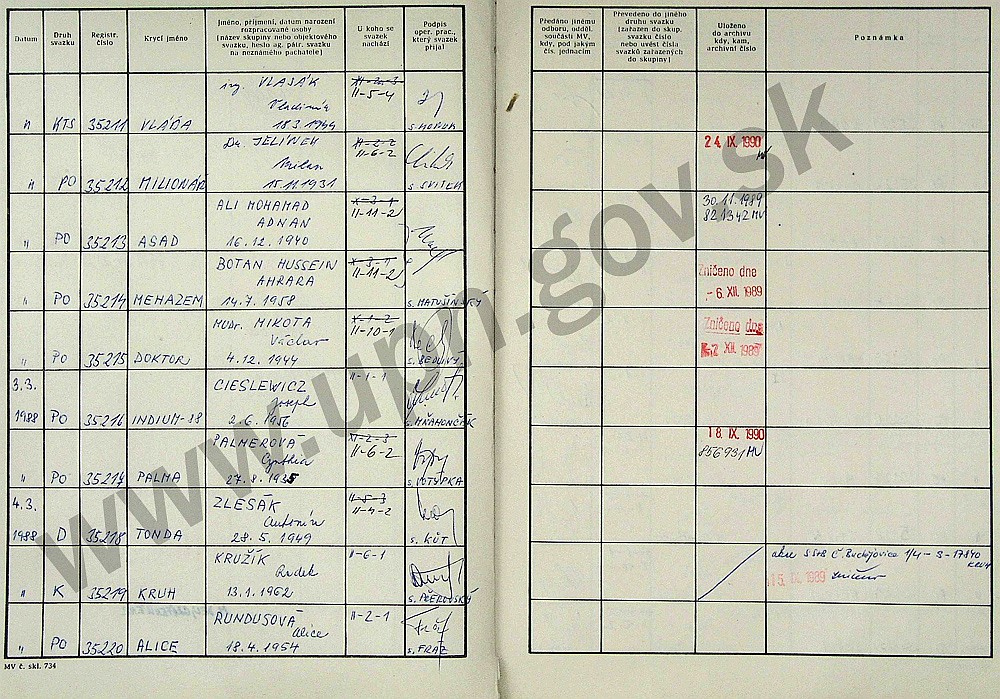 Datum
Druh
svazku
Registr.
číslo
Krycí jméno
Jméno, příjmení, datum narození
rozpracované osoby
(název skupiny nebo objektového
svazku, heslo ag. pátr. svazku
na neznámého pachatele)
U koho se
svazek
nachází
Podpis
oper. prac.,
který svazek
přijal
Předáno jinému
odboru, odděl.
součásti MV,
kdy, pod jakým
čís. jednacím
Převedeno do jiného
druhu svazku
(zařazen do skup.
svazku číslo
nebo uvést čísla
svazků zařazených
do skupiny)
Uloženo
do archivu
kdy, kam,
archivní číslo
Poznámka
ing. VLASÁK
Vladimír
18.3.1944
II-5-4
" KTS 35211 VLÁĎA
Dr. JELÍNEK
Milan
15.11.1931
II-6-2
" PO 35212 MILIONÁŘ
s. SVITEK
24. IX. 1990
ALI MOHAMAD
ADNAN
16.12.1940
X-3-1
II-11-2
" PO 35213 ASAD
30.11.1989
821342 MV
BOTAN HUSSEIN
AHRARA
14.7.1958
X-3-1
II-11-2
" PO 35214 MEHAZEM
Zničeno dne
-6. XII. 1989
MUDr. MIKOTA
Václav
4.12.1944
X-1-2
II-10-1
" PO 35215 DOKTOR
Zničeno dne
XII. 1989
3.3.
1988 PO 35216 INDIUM-88
CIESLEWICZ
Joseph
2.6.1956
II-1-1
s. MŇAHONČÁK
PALMEROVÁ
Cynthia
27.8.1935
II-2-3
II-6-2
" PO 35217 PALMA
s. VOTYPKA
18. IX. 1990
856931 MV
4.3.
1988 D 35218 TONDA
ZLESÁK
Antonín
28.5.1949
II-5-3
II-4-2
s. KŮT
KRUŽÍK
Radek
13.1.1962
II-6-1
" K 35219 KRUH
S StB Č. Budějovice
KRUH
15. IX. 1989
RUNDUSOVÁ
Alice
18.4.1954
II-2-1
" PO 35220 ALICE
MV č. skl. 734
www.upn.gov.sk